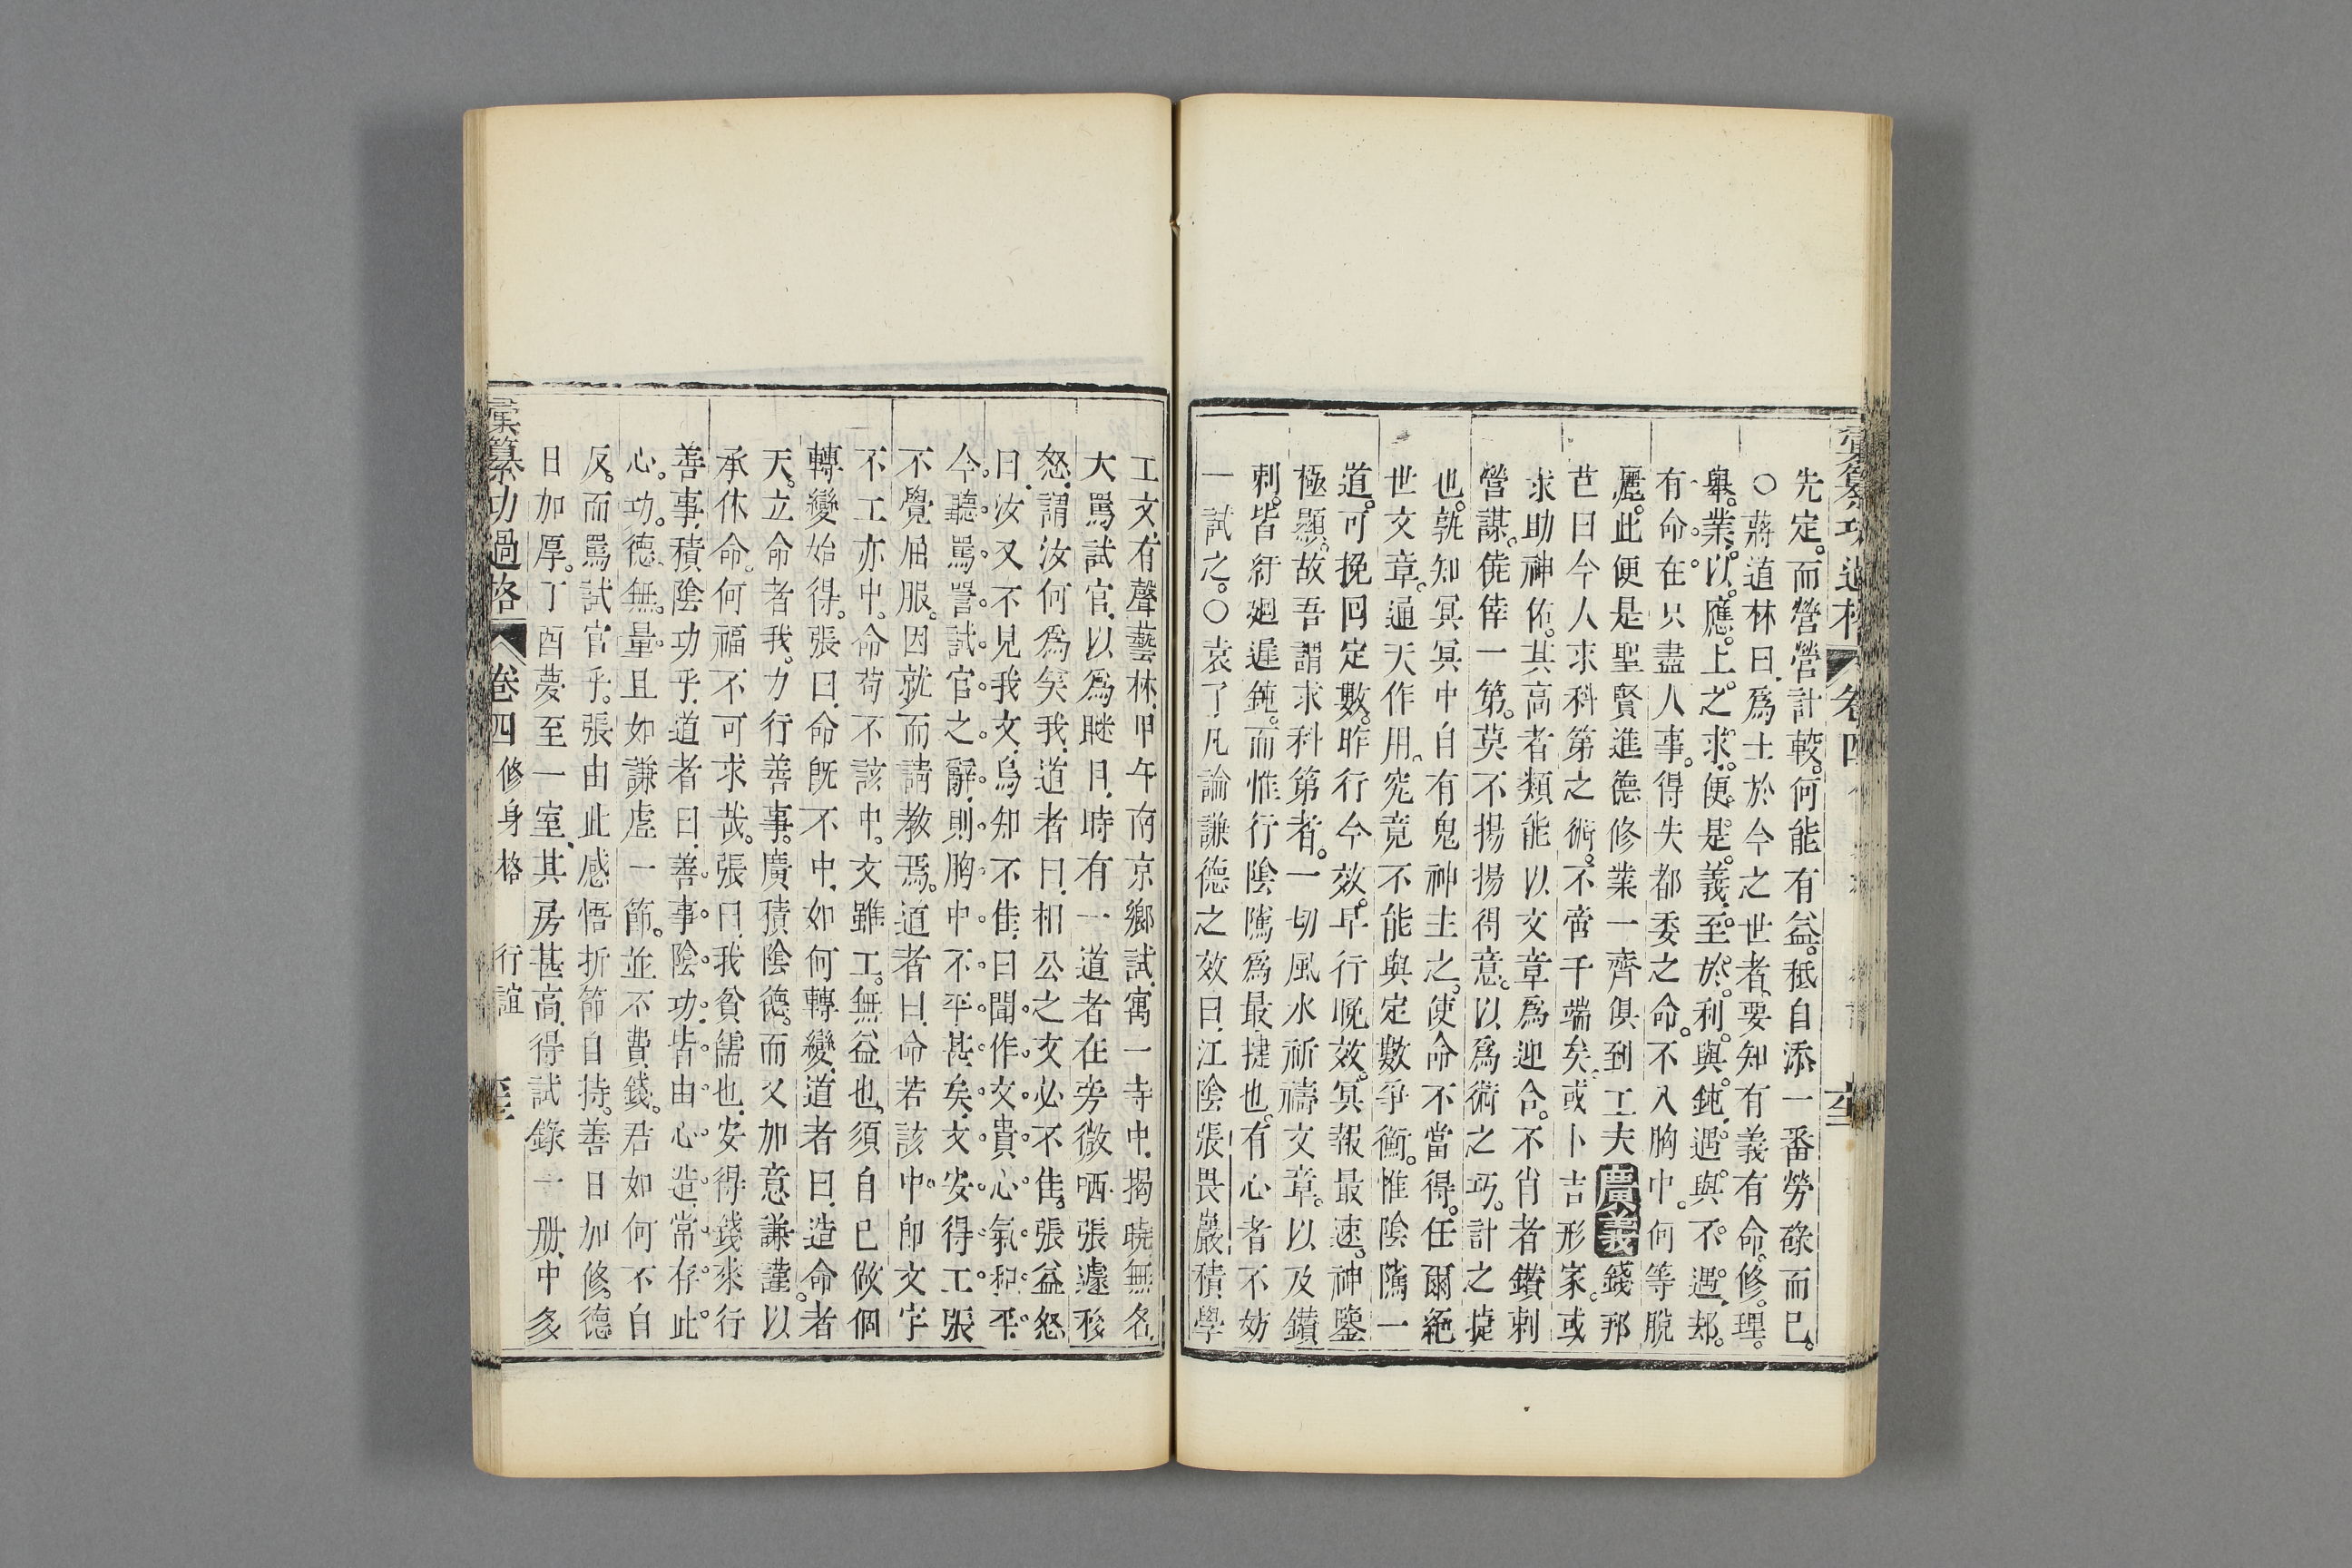 先定。而營營計較。何能有益。秪自添一番勞碌而已。
○蔣道林曰。爲士於今之世者。要知有義有命。修。理。
舉。業。以。應。上。之。求。便。是。義。至。於。利。與。鈍。遇。與。不。遇。却。
有。命。在。只盡人事。得失都委之命。不入胸中。何等脫
灑。此便是聖賢進德修業一齊俱到工夫 廣義 錢邦
芑曰今人求科第之術。不啻千端矣。或卜吉形家。或
求助神佑。其高者類能以文章爲迎合。不肖者鑽刺
營謀。僥倖一第。莫不揚揚得意。以爲術之巧。計之捷
也。孰知冥冥中自有鬼神主之。使命不當得。任爾絕
世文章。通天作用。究竟不能與定數爭衡。惟陰隲一
道。可挽回定數。昨行今效。早行晚效。冥報最速。神鑒
極顯。故吾謂求科第者。一切風水祈禱文章。以及鑽
刺。皆紆廻遲鈍。而惟行陰隲爲最捷也。有心者不妨
一試之。○袁了凡論謙德之效曰。江陰張畏巖積學
工文。有聲藝林。甲午南京鄉試。寓一寺中。揭曉無名。
大罵試官。以爲瞇目。時有一道者在旁微哂。張遽移
怒。謂汝何爲笑我。道者曰。相公之文必不佳。張益怒
曰。汝又不見我文。烏知不佳。曰。聞。作。文。貴。心。氣。和。平。
今。聽。罵。詈。試。官。之。辭。則。胸。中。不。平。甚。矣。文。安。得。工。張
不覺屈服。因就而請教焉。道者曰。命若該中。卽文字
不工亦中。命苟不該中。文雖工。無益也。須自己做個
轉變始得。張曰。命旣不中。如何轉變。道者曰。造命者
天。立命者我。力行善事。廣積陰德。而又加意謙謹。以
承休命。何福不可求哉。張曰。我貧儒也。安得錢來行
善事。積陰功乎。道者曰。善。事。陰。功。皆。由。心。造。常。存。此。
心。功。德。無。量。且如謙虛一節。並不費錢。君如何不自
反。而罵試官乎。張由此感悟折節自持。善日加修。德
日加厚。丁酉夢至一室。其房甚高。得試錄一册。中多
彙纂功過格 卷四 修身格 行誼